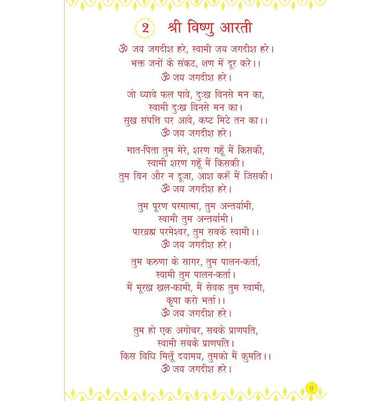 2 श्री विष्णु आरती
ॐ जय जगदीश हरे, स्वामी जय जगदीश हरे।
भक्त जनों के संकट, क्षण में दूर करे।।
ॐ जय जगदीश हरे।
जो ध्यावे फल पावे, दुःख विनसे मन का,
स्वामी दुःख विनसे मन का।
सुख संपत्ति घर आवे, कष्ट मिटे तन का।।
ॐ जय जगदीश हरे।
मात-पिता तुम मेरे, शरण गहूँ मैं किसकी,
स्वामी शरण गहूँ मैं किसकी।
तुम बिन और न दूजा, आश करूँ मैं जिसकी।
ॐ जय जगदीश हरे।
तुम पूरण परमात्मा, तुम अन्तर्यामी,
स्वामी तुम अन्तर्यामी।
पारब्रह्म परमेश्वर, तुम सबके स्वामी।।
ॐ जय जगदीश हरे।
तुम करुणा के सागर, तुम पालन-कर्ता,
स्वामी तुम पालन-कर्ता।
मैं मूरख खल-कामी, मैं सेवक तुम स्वामी,
कृपा करो भर्ता।।
ॐ जय जगदीश हरे।
तुम हो एक अगोचर, सबके प्राणपति,
स्वामी सबके प्राणपति।
किस विधि मिलूँ दयामय, तुमको मैं कुमति।।
ॐ जय जगदीश हरे।